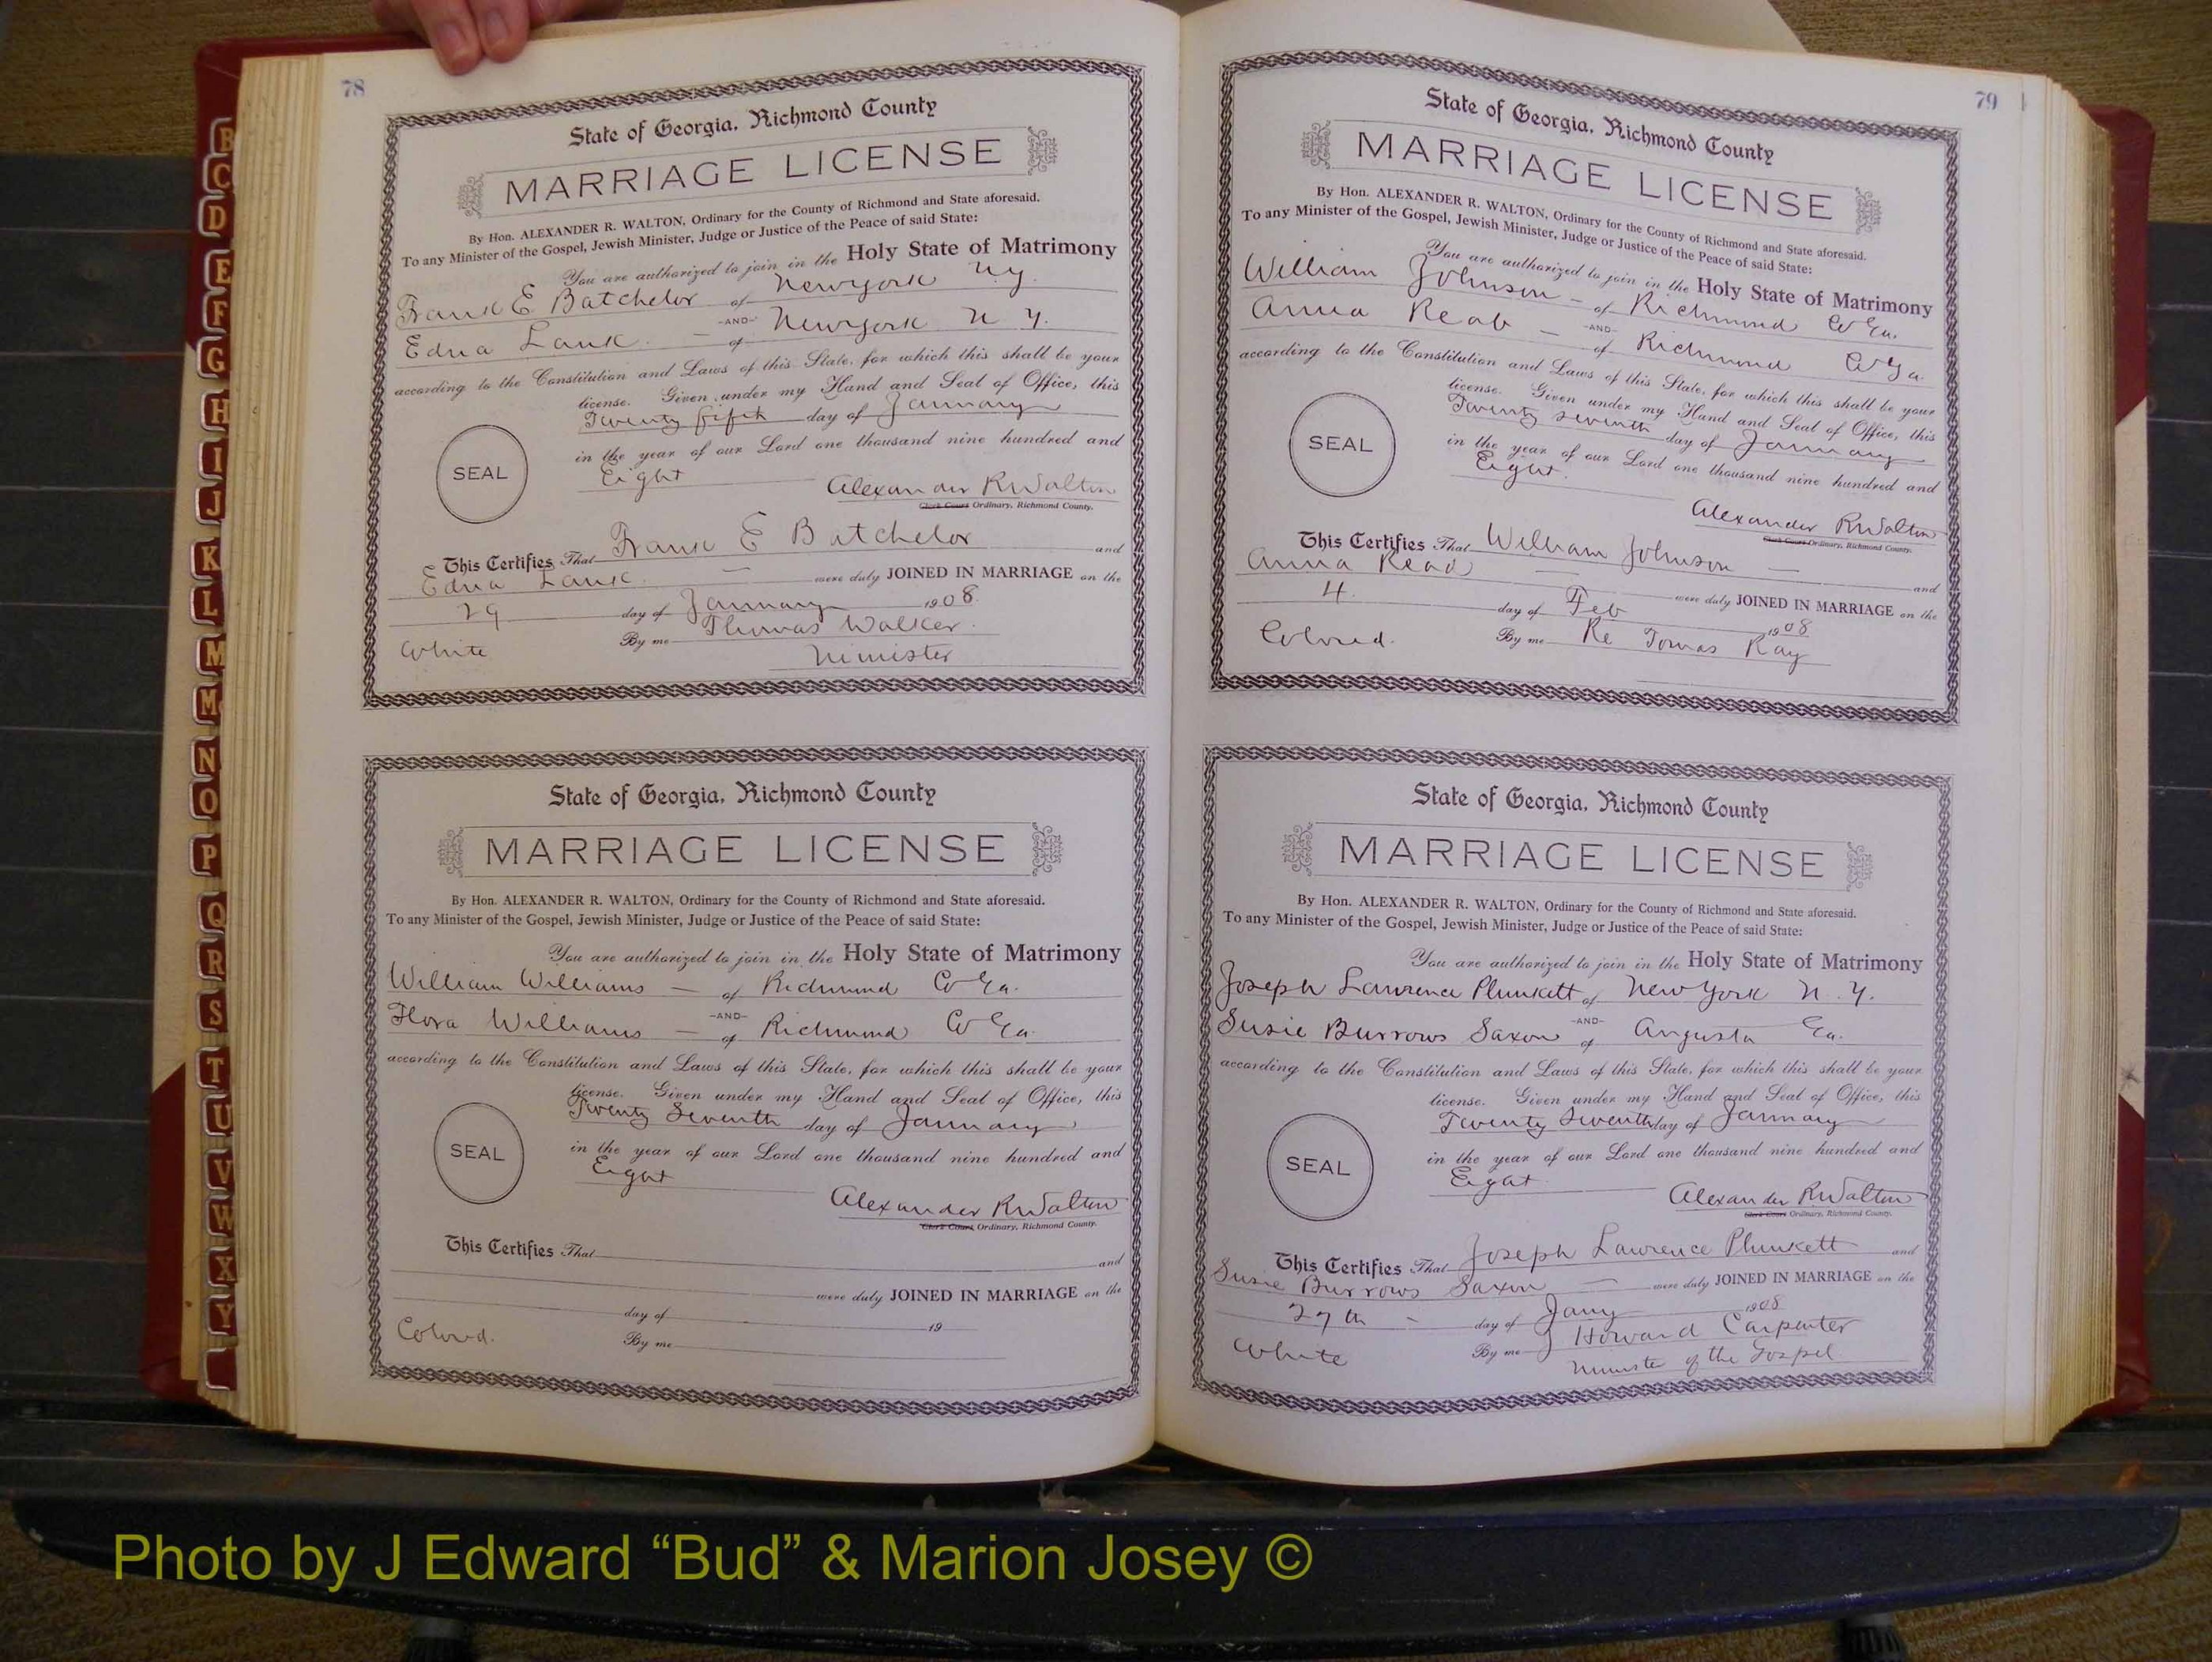 78
State of Georgia, Richmond County
MARRIAGE LICENSE
By Hon. ALEXANDER R. WALTON, Ordinary for the County of Richmond and State aforesaid.
To any Minister of the Gospel, Jewish Minister, Judge or Justice of the Peace of said State:
You are authorized to join in the Holy State of Matrimony
Frank E Batchelor of Newyork N Y.
-AND-
Edna Lank. — of Newyork N Y.
according to the Constitution and Laws of this State, for which this shall be your
license. Given under my Hand and Seal of Office, this
Twenty fifth day of January
in the year of our Lord one thousand nine hundred and
SEAL
Eight
Alexander R Walton
Clerk Court Ordinary, Richmond County.
This Certifies That Frank E Batchelor and
Edna Lank. — were duly JOINED IN MARRIAGE on the
29 day of January 1908.
White By me Thomas Walker.
Minister
State of Georgia, Richmond County
MARRIAGE LICENSE
By Hon. ALEXANDER R. WALTON, Ordinary for the County of Richmond and State aforesaid.
To any Minister of the Gospel, Jewish Minister, Judge or Justice of the Peace of said State:
You are authorized to join in the Holy State of Matrimony
William Williams — of Richmond Co Ga.
-AND-
Flora Williams — of Richmond Co Ga.
according to the Constitution and Laws of this State, for which this shall be your
license. Given under my Hand and Seal of Office, this
Twenty Seventh day of January
in the year of our Lord one thousand nine hundred and
SEAL
Eight
Alexander R Walton
Clerk Court Ordinary, Richmond County.
This Certifies That and
were duly JOINED IN MARRIAGE on the
day of 19
Colored. By me
79
State of Georgia, Richmond County
MARRIAGE LICENSE
By Hon. ALEXANDER R. WALTON, Ordinary for the County of Richmond and State aforesaid.
To any Minister of the Gospel, Jewish Minister, Judge or Justice of the Peace of said State:
You are authorized to join in the Holy State of Matrimony
William Johnson — of Richmond Co Ga.
-AND-
Anna — of Richmond Co Ga
according to the Constitution and Laws of this State, for which this shall be your
license. Given under my Hand and Seal of Office, this
Twenty seventh day of January
in the year of our Lord one thousand nine hundred and
SEAL
Eight.
Alexander R Walton
Clerk Court Ordinary, Richmond County.
This Certifies That William Johnson — and
Anna — were duly JOINED IN MARRIAGE on the
4. day of Feb 1908
Colored. By me Re Tomas Ray
State of Georgia, Richmond County
MARRIAGE LICENSE
By Hon. ALEXANDER R. WALTON, Ordinary for the County of Richmond and State aforesaid.
To any Minister of the Gospel, Jewish Minister, Judge or Justice of the Peace of said State:
You are authorized to join in the Holy State of Matrimony
Joseph Lawrence Plunkett of New York N.Y.
-AND-
Susie Burrows Saxon of Augusta Ga.
according to the Constitution and Laws of this State, for which this shall be your
license. Given under my Hand and Seal of Office, this
Twenty Seventh day of January
in the year of our Lord one thousand nine hundred and
SEAL
Eight
Alexander R Walton
Clerk Court Ordinary, Richmond County.
This Certifies That Joseph Lawrence Plunkett and
Susie Burrows Saxon — were duly JOINED IN MARRIAGE on the
27th - day of Jany 1908
White By me J Howard Carpenter
Minister of the Gospel
B
C
D
E
F
G
H
I
J
K
L
M
Mc
N
O
P
Q
R
S
T
U
V
W
X
Y
Photo by J Edward “Bud” & Marion Josey ©